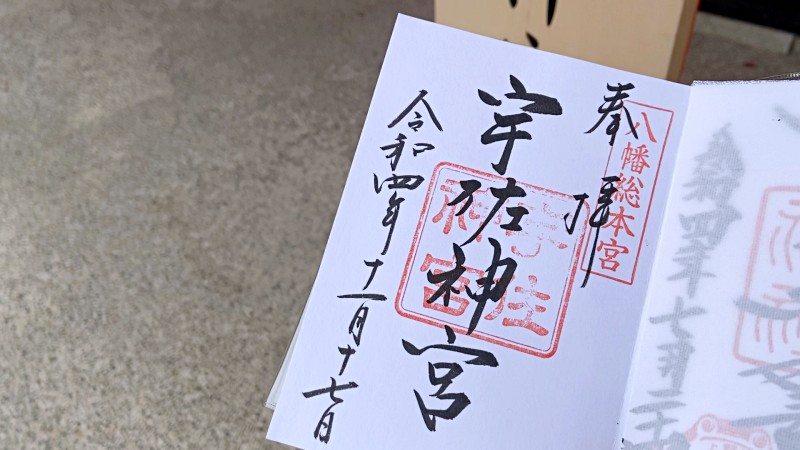 奉拝
八幡総本宮
宇佐神宮
令和四年十一月十七日